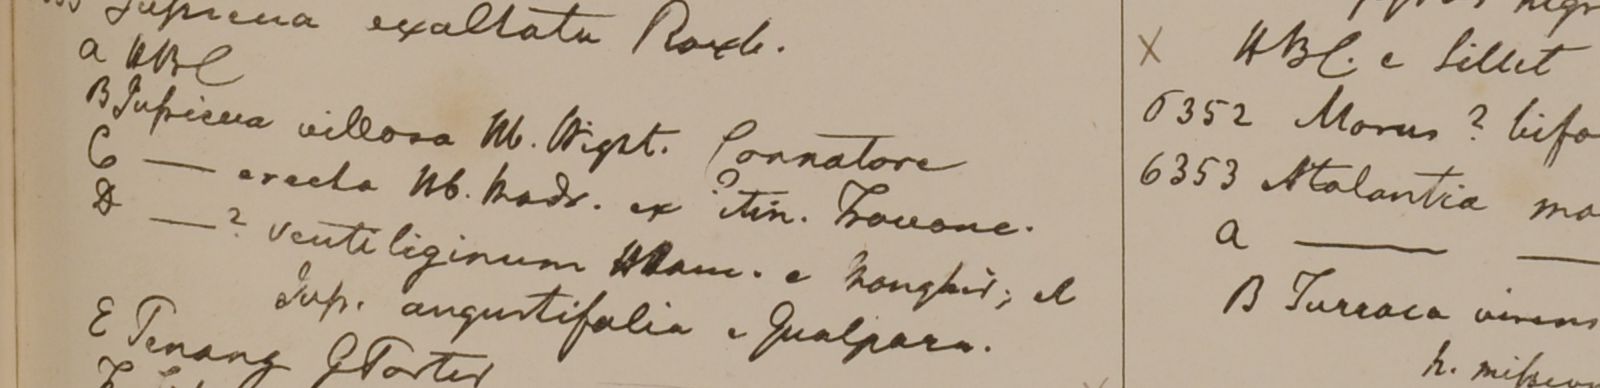 exaltata Roxb.
a HBC
B Jussieua villosa Hb. Wight. Connatore
C — erecta Hb. Madr. ex itin. Travanc.
D —? ventiliginum HHam. e Monghir; et
Jup. angustifolia e Gualpara.
E Penang G Porter
X HBC. e Sillet
6352 Morus ? bifo
6353 Atalantia mo
a —— ——
B Turraea virens
h.